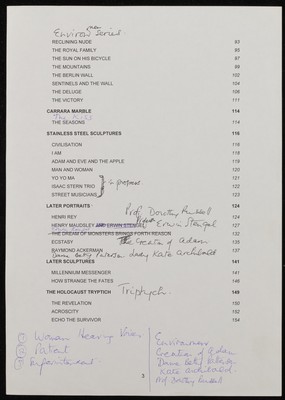 Environ new series
RECLINING NUDE 93
THE ROYAL FAMILY 95
THE SUN ON HIS BICYCLE 97
THE MOUNTAINS 99
THE BERLIN WALL 102
SENTINELS AND THE WALL 104
THE DELUGE 106
THE VICTORY 111
CARRARA MARBLE 114
THE SEASONS 114
STAINLESS STEEL SCULPTURES 116
CIVILISATION 118
I AM 118
ADAM AND EVE AND THE APPLE 118
MAN AND WOMAN 120
YO YO MA 121
ISAAC STERN TRIO in progress 122
STREET MUSICIANS 123
LATER PORTRAITS 124
HENRI REY Prof. Dorothy Russell
HENRY MAUDSLEY AND ERWIN STENGEL Erwin Stengel 127
THE DREAM OF MONSTERS BRINGS FORTH REASON 132
ECSTASY The Creation of Adam 135
RAYMOND ACKERMAN 137
Dame Betty Paterson Lady Kate Archibald
LATER SCULPTURES 141
MILLENNIUM MESSENGER 141
HOW STRANGE THE FATES 146
THE HOLOCAUST TRYPTICH Triptych 149
THE REVELATION 150
ACROSCITY 152
ECHO THE SURVIVOR 154
1 Woman Hearing Voices
2 Patient
3 Superintendent
Environment
Creation of Adam
Dame Betty
Kate Archibald
Prof Dorothy Russell
3